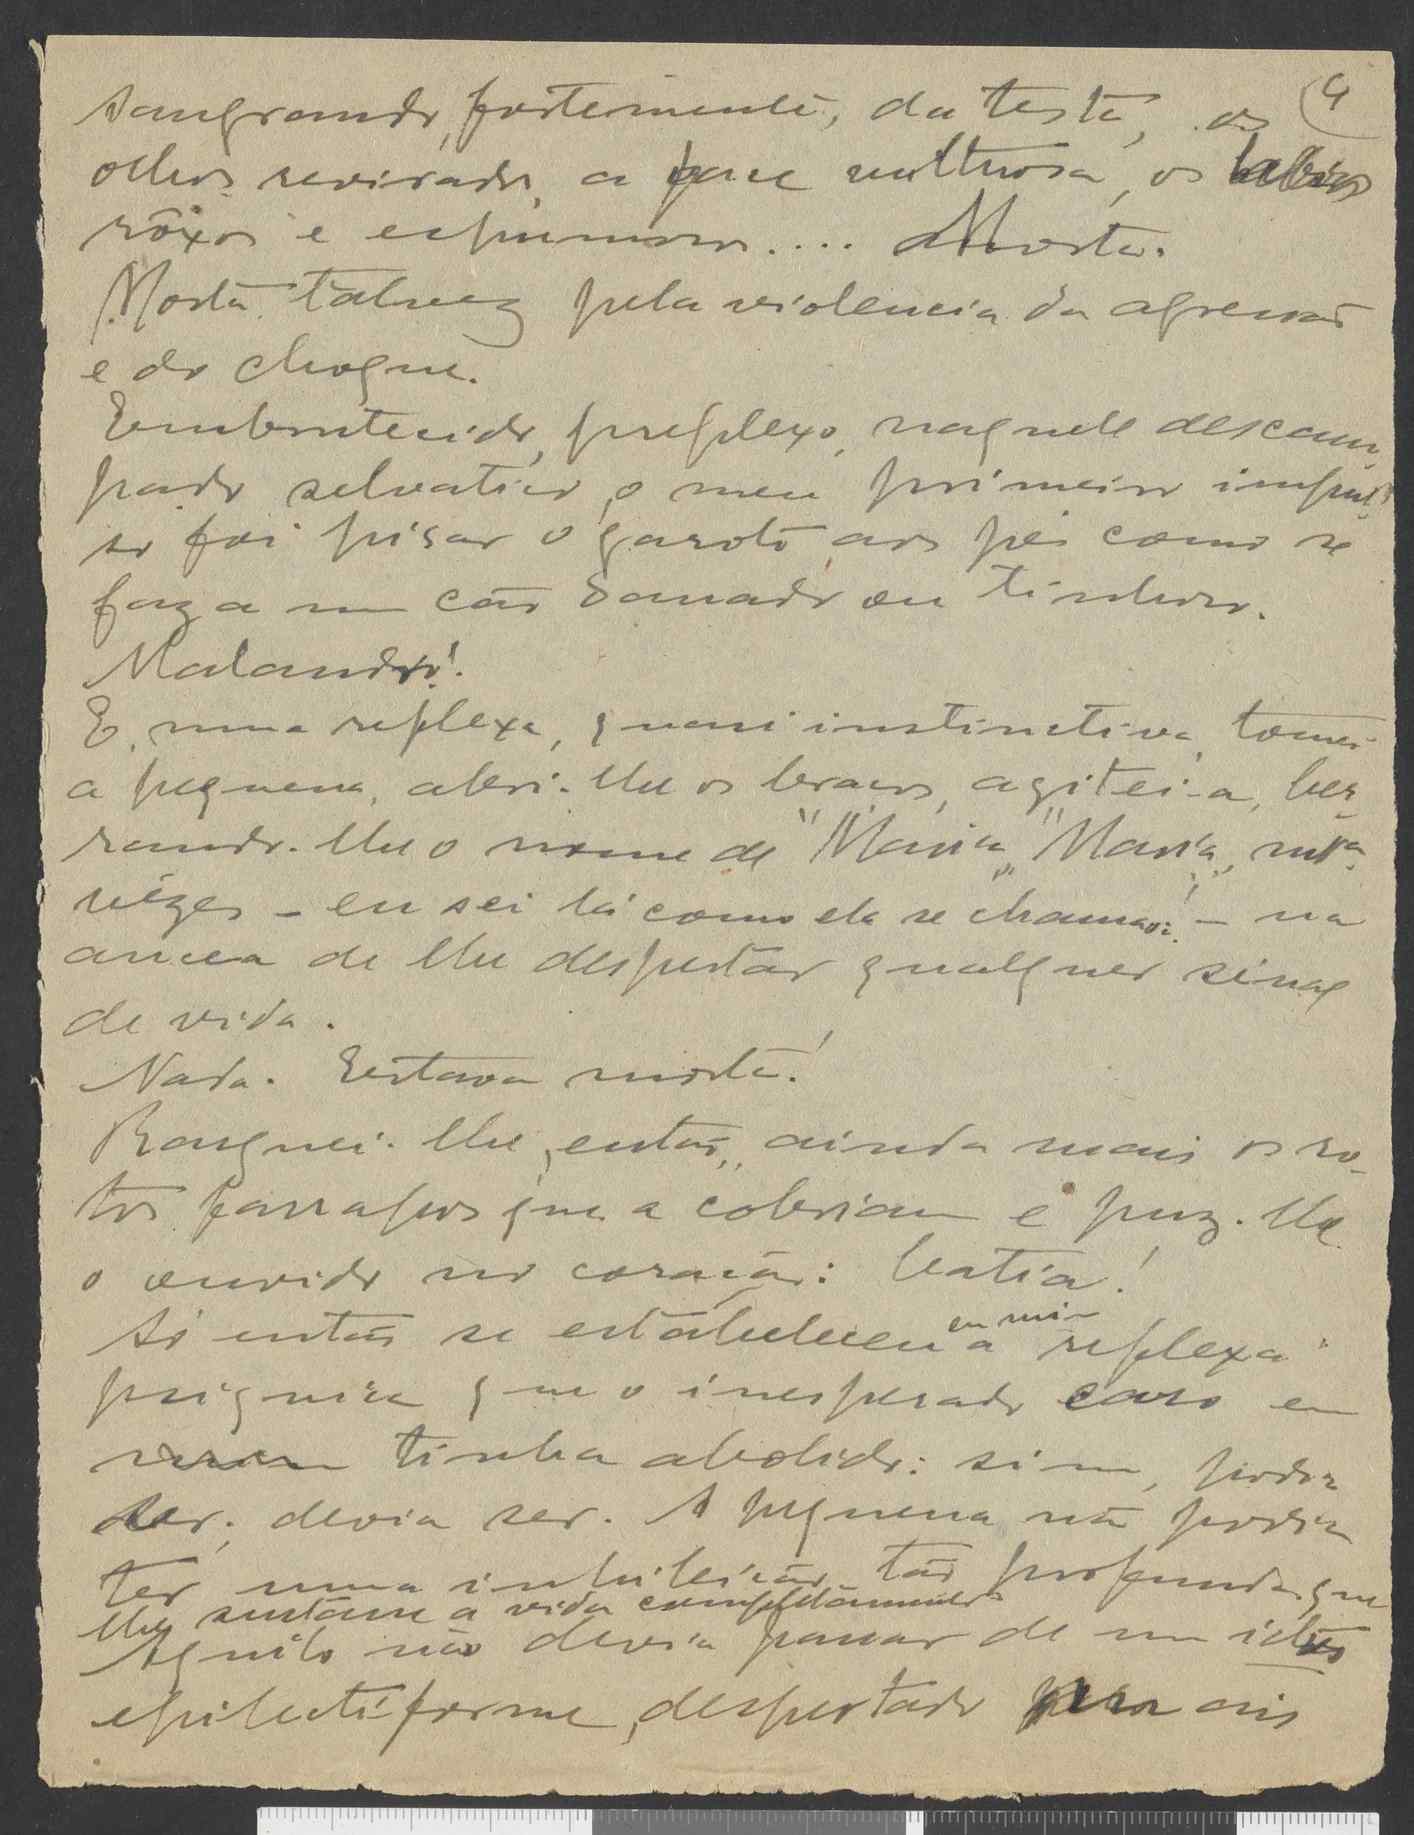 4
sangrando, fortemente, da testa, os
olhos revirados, a face vultuosa, os labios
rôxos e espumosos.... Morta.
Morta talvez pela violencia da agressão
e do choque.
Embrutecido, preplexo, naquele descam-
pado selvatico, o meu primeiro impul-
so foi pisar o garoto aos pés como se
faz a um cão danado ou tinhoso.
Malandro!
E, numa reflexa, quasi instinctiva, tomei
a pequena, abri-lhe os braços, agitei-a, ber-
rando-lhe o nome de "Maria", "Maria",
vêzes - eu sei lá como ela se chamava! - na
ancea de lhe despertar qualquer sinal
de vida.
Nada. Estava morta!
Rasguei-lhe, então, ainda mais os ro-
tos farrapos que a cobriam e puz-lhe
o ouvido no coração: batia!
Só então se estabeleceu em mim a reflexa
psiquica que o inesperado caso em
tinha abolido: sim, podia
ser, devia ser. A pequena não podia
ter uma inhibição tão profunda que
lhe sustasse a vida completamente
Aquilo não devia passar de um ictus
epileptiforme, despertado